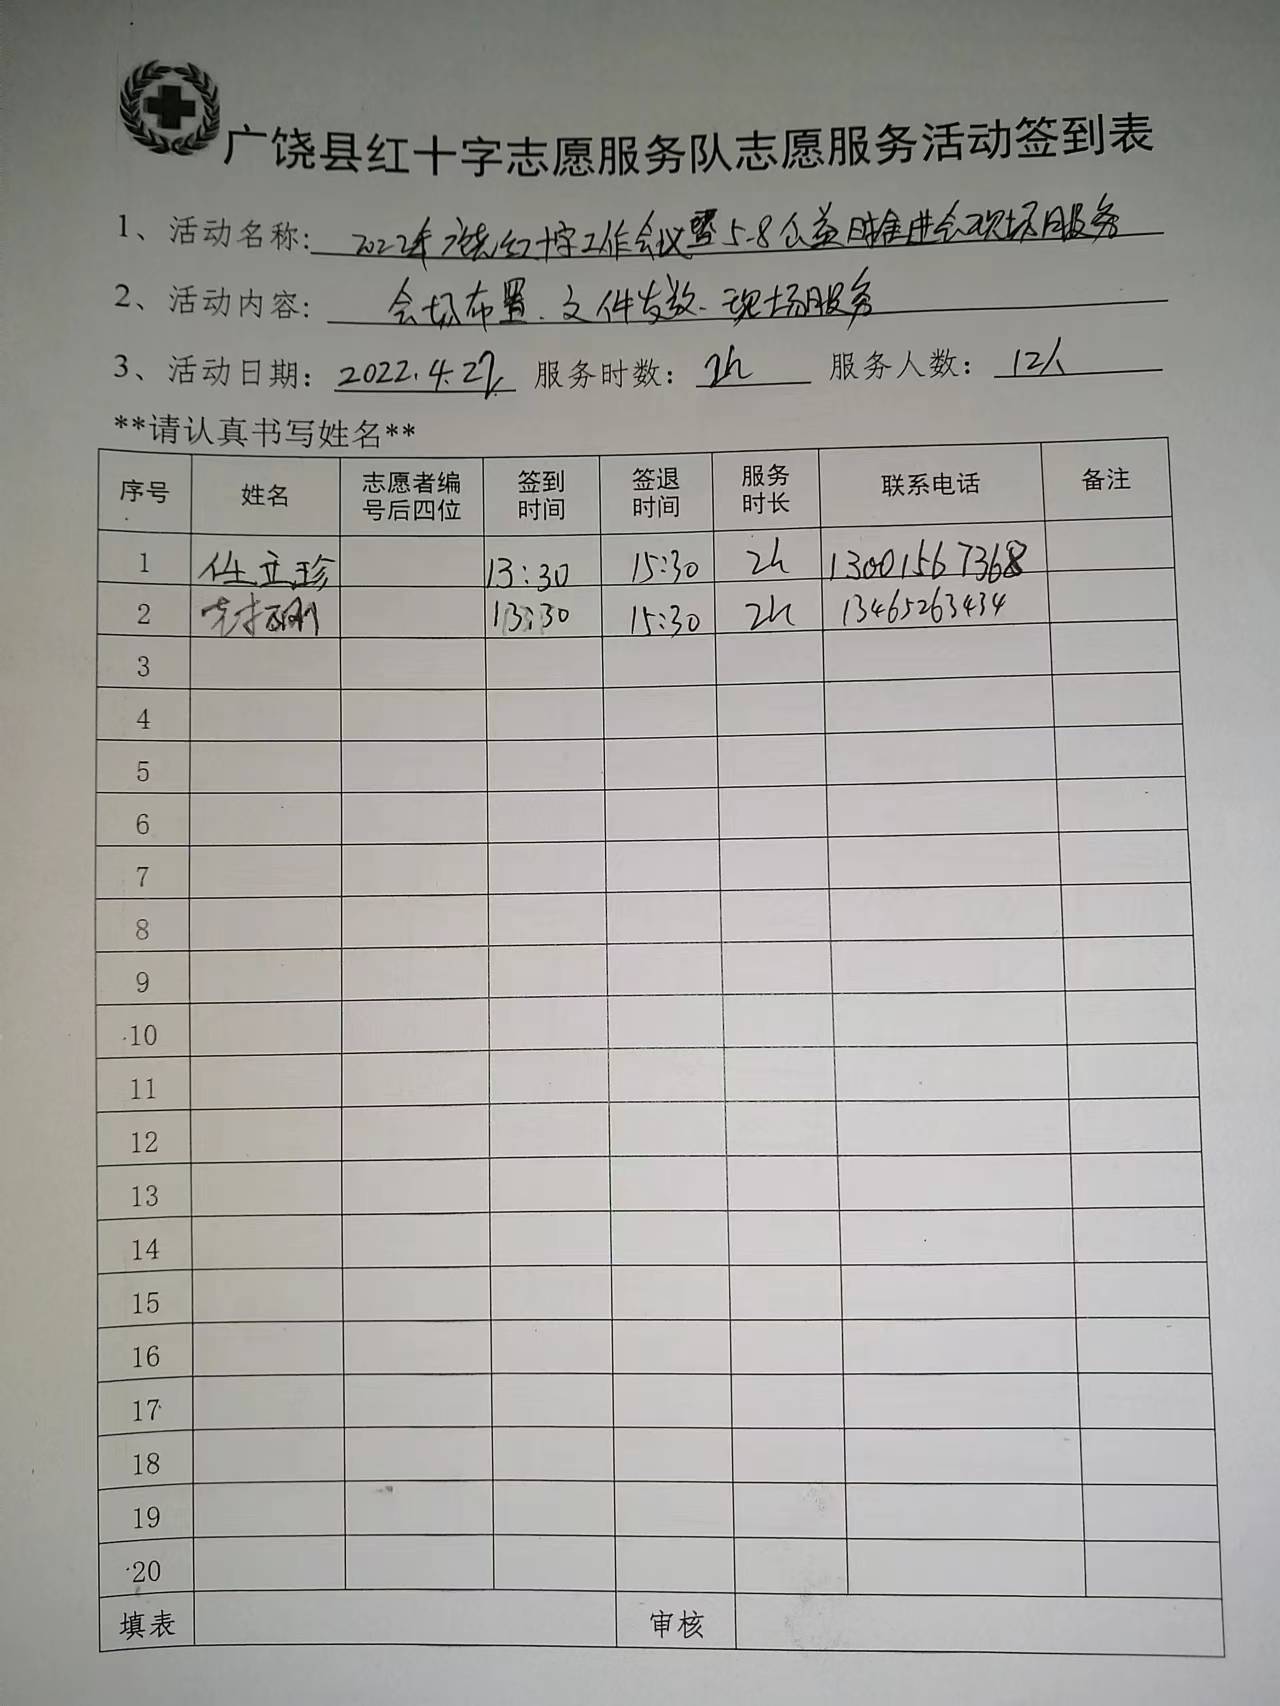 广饶县红十字志愿服务队志愿服务活动签到表
1、活动名称: 2022年广饶红十字工作会议暨5·8公益月推进会现场服务
2、活动内容: 会场布置、文件发放、现场服务
3、活动日期: 2022.4.27 服务时数: 2h 服务人数: 12人
**请认真书写姓名**
序号 姓名 志愿者编号后四位 签到时间 签退时间 服务时长 联系电话 备注
1 任立珍 13:30 15:30 2h 13001567368
2 13:30 15:30 2h 13465263434
3
4
5
6
7
8
9
10
11
12
13
14
15
16
17
18
19
20
填表 审核